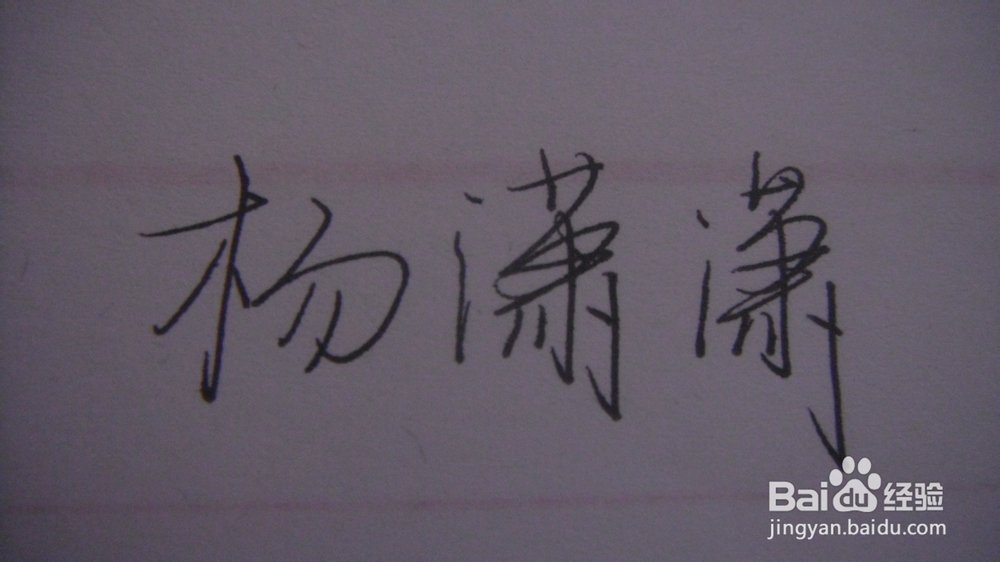 杨潇潇
Baidu 经验
jingyan.baidu.com